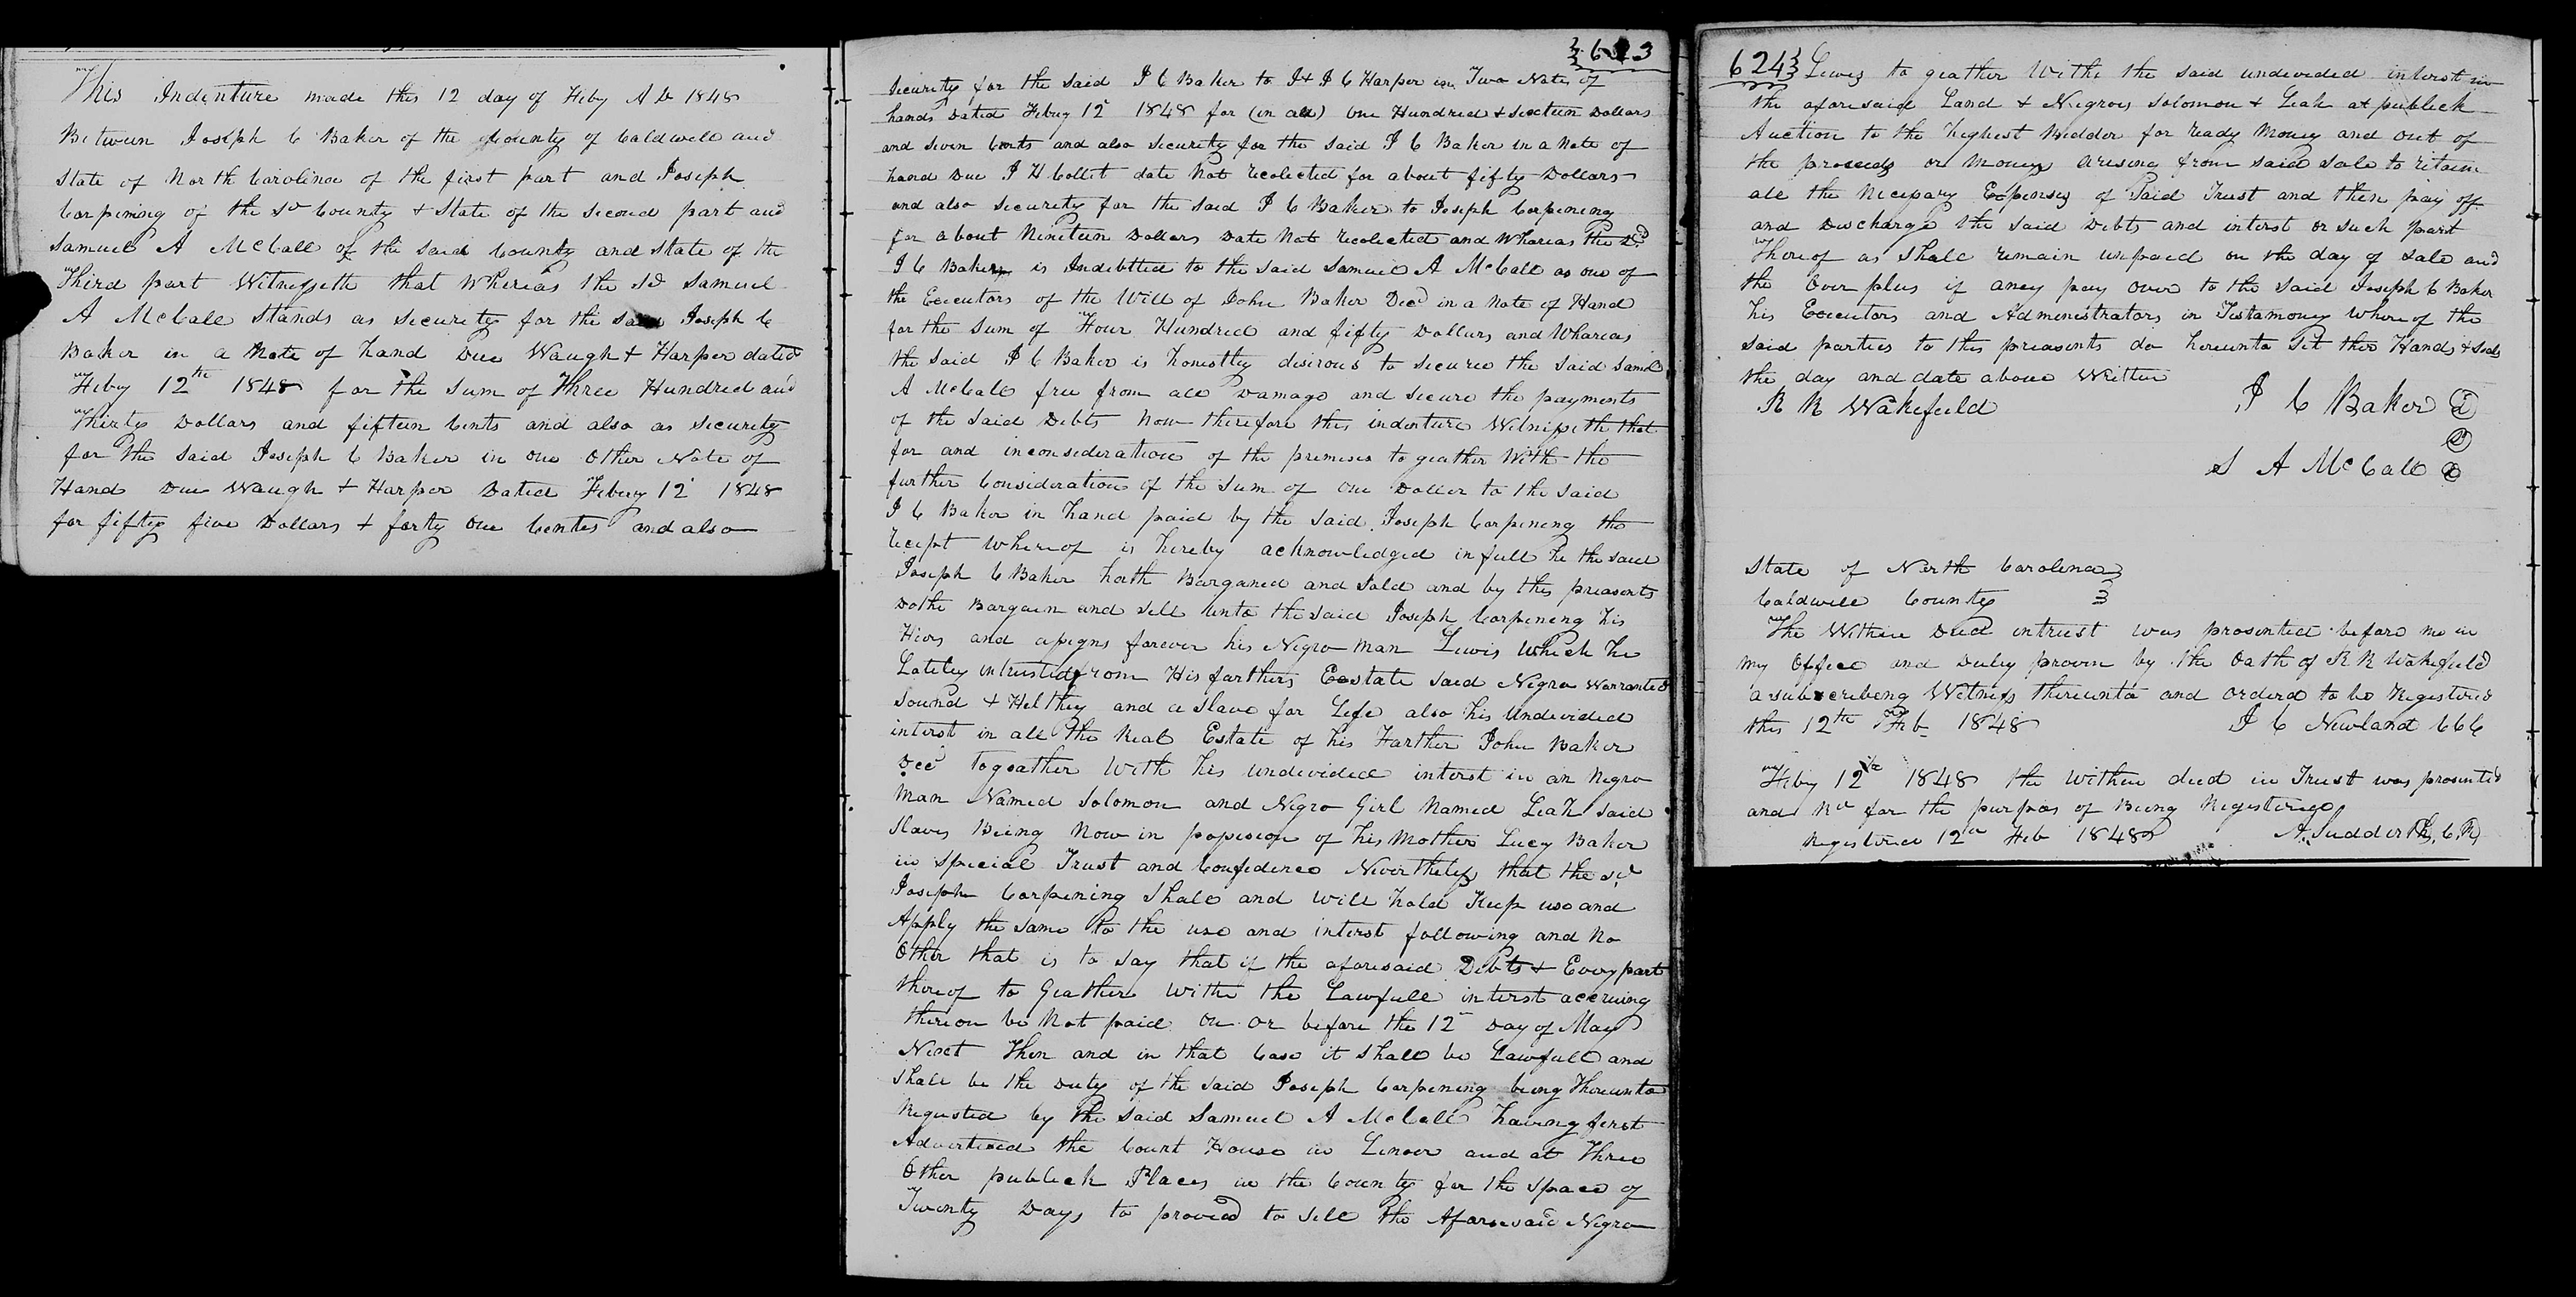 This Indenture made this 12 day of Feby A D 1848
Between Joseph C Baker of the County of Caldwell and
State of North Carolina of the first part and Joseph
Corpening of the sd County & State of the Second part and
Samuel A McCall of the said County and State of the
Third part Witnesseth that Whereas the sd Samuel
A McCall Stands as Security for the said Joseph C
Baker in a Note of hand Due Waugh & Harper dated
Feby 12th 1848 for the Sum of Three Hundred and
Thirty Dollars and fifteen Cents and also as Security
for the Said Joseph C Baker in one Other Note of
Hand Due Waugh & Harper Dated Febuy 12 1848
for fifty five Dollars & forty one Centes and also
623
Security for the Said J C Baker to J & J C Harper in Two Notes of
hands Dated Febuy 12 1848 for (in all) One Hundred & Sixcteen Dollars
and Seven Cents and also Security for the Said J C Baker in a Note of
hand Due J H Collet date Not Recolected for about fifty Dollars
and also Security for the Said J C Baker to Joseph Corpening
for about Nineteen Dollars Date Not Recolected and Wharias the Sd
J C Baker is Indebtted to the Said Samuel A McCall as one of
the Executors of the Will of John Baker Decd in a Note of Hand
for the Sum of Four Hundred and fifty Dollars and Wharias
the Said J C Baker is honestley desirous to Secure the Said Saml
A McCall free from all Damage and Secure the payments
of the Said Debts Now therefore this indenture Witnesseth that
for and inconsideration of the premises to geather With the
further Consideration of the Sum of One Doller to the Said
J C Baker in hand paid by the Said Joseph Corpening the
Receipt Whereof is hereby acknowledged in full he the Said
Joseph C Baker hath Barganed and Sold and by this preasents
Dothe Bargain and Sell Unto the Said Joseph Corpening his
Hiers and assigns forever his Negro Man Lewis Which he
Lateley intrusted from His farthers Eestate Said Negro Warranted
Sound & Helthey and a Slave for Life also his Undivided
interst in all the Real Estate of his Farther John Baker
Decd Togeather With his undivided interst in an Negro
Man Named Solomon and Negro Girl Named Leah Said
Slaves Being Now in possision of his Mother Lucy Baker
in Special Trust and Confidence Neverthelefs that the sd
Joseph Corpening Shall and Will hold Keep use and
Apply the Same to the use and interst following and No
Other that is to Say that if the aforesaid Debts & Every part
thereof to Geather With the Lawfull interst accruing
thereon be Not paid On or before the 12 Day of May
Next Then and in that Case it Shall be Lawfull and
Shall be the Duty of the Said Joseph Corpening being Thereunto
Requsted by the Said Samuel A McCall having first
Advertised the Court House in Lenoir and at Three
Other publick Places in the County for the Space of
Twenty Days to proceed to Sell the Aforesaid Negro
624 Lewis to geather Withe the Said undevided interst in
the aforesaid Land & Negroes Solomon & Leah at publick
Auction to the highest Bidder for ready Money and out of
the proceeds or Moneys arising from Said Sale to retain
all the Necissary Expenses of Said Trust and then pay off
and Discharge the Said Debts and interst or Such part
Thereof as Shall remain unpaid on the day of Sale and
the Over plus if aney pay over to the Said Joseph C Baker
his Executors and Administrators in Testamoney Where of the
Said parties to this preasents do hereunto Set ther Hands & Seals
the day and date above Written
R R Wakefield J C Baker
S A McCall
State of North Carolina
Caldwell County
The Within Deed intrust was prosented before me in
my Office and Duley proven by the Oath of R R Wakefield
a subscribeng Witness thereunto and ordered to be Registered
this 12th Feb 1848 J C Newland CCC
Feby 12th 1848 the Within deed in Trust was prosented
and Rd for the purpos of Being Registered
Registered 12th Feb 1848 A. Sudderth, C.R